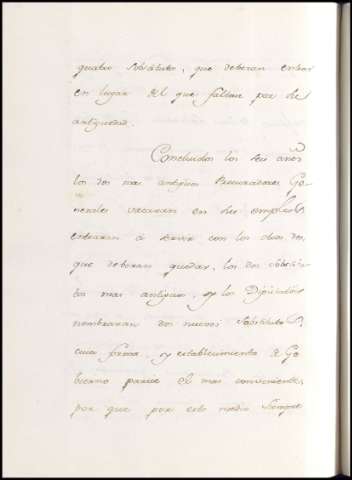 quatro Substitutos, que deberan entrar
en lugar del que faltare por su
antiguedad.
Concluidos los seis años
los dos mas antiguos Procuradores Ge-
nerales vacaran en sus empleos,
entraran á servir con los otros dos,
que deberan quedar, los dos Substitu-
tos mas antiguos, y los Diputados
nombraran dos nuevos Substitutos,
cuia forma, y establecimiento de Go-
bierno parece el mas conveniente,
por que por este medio siempre